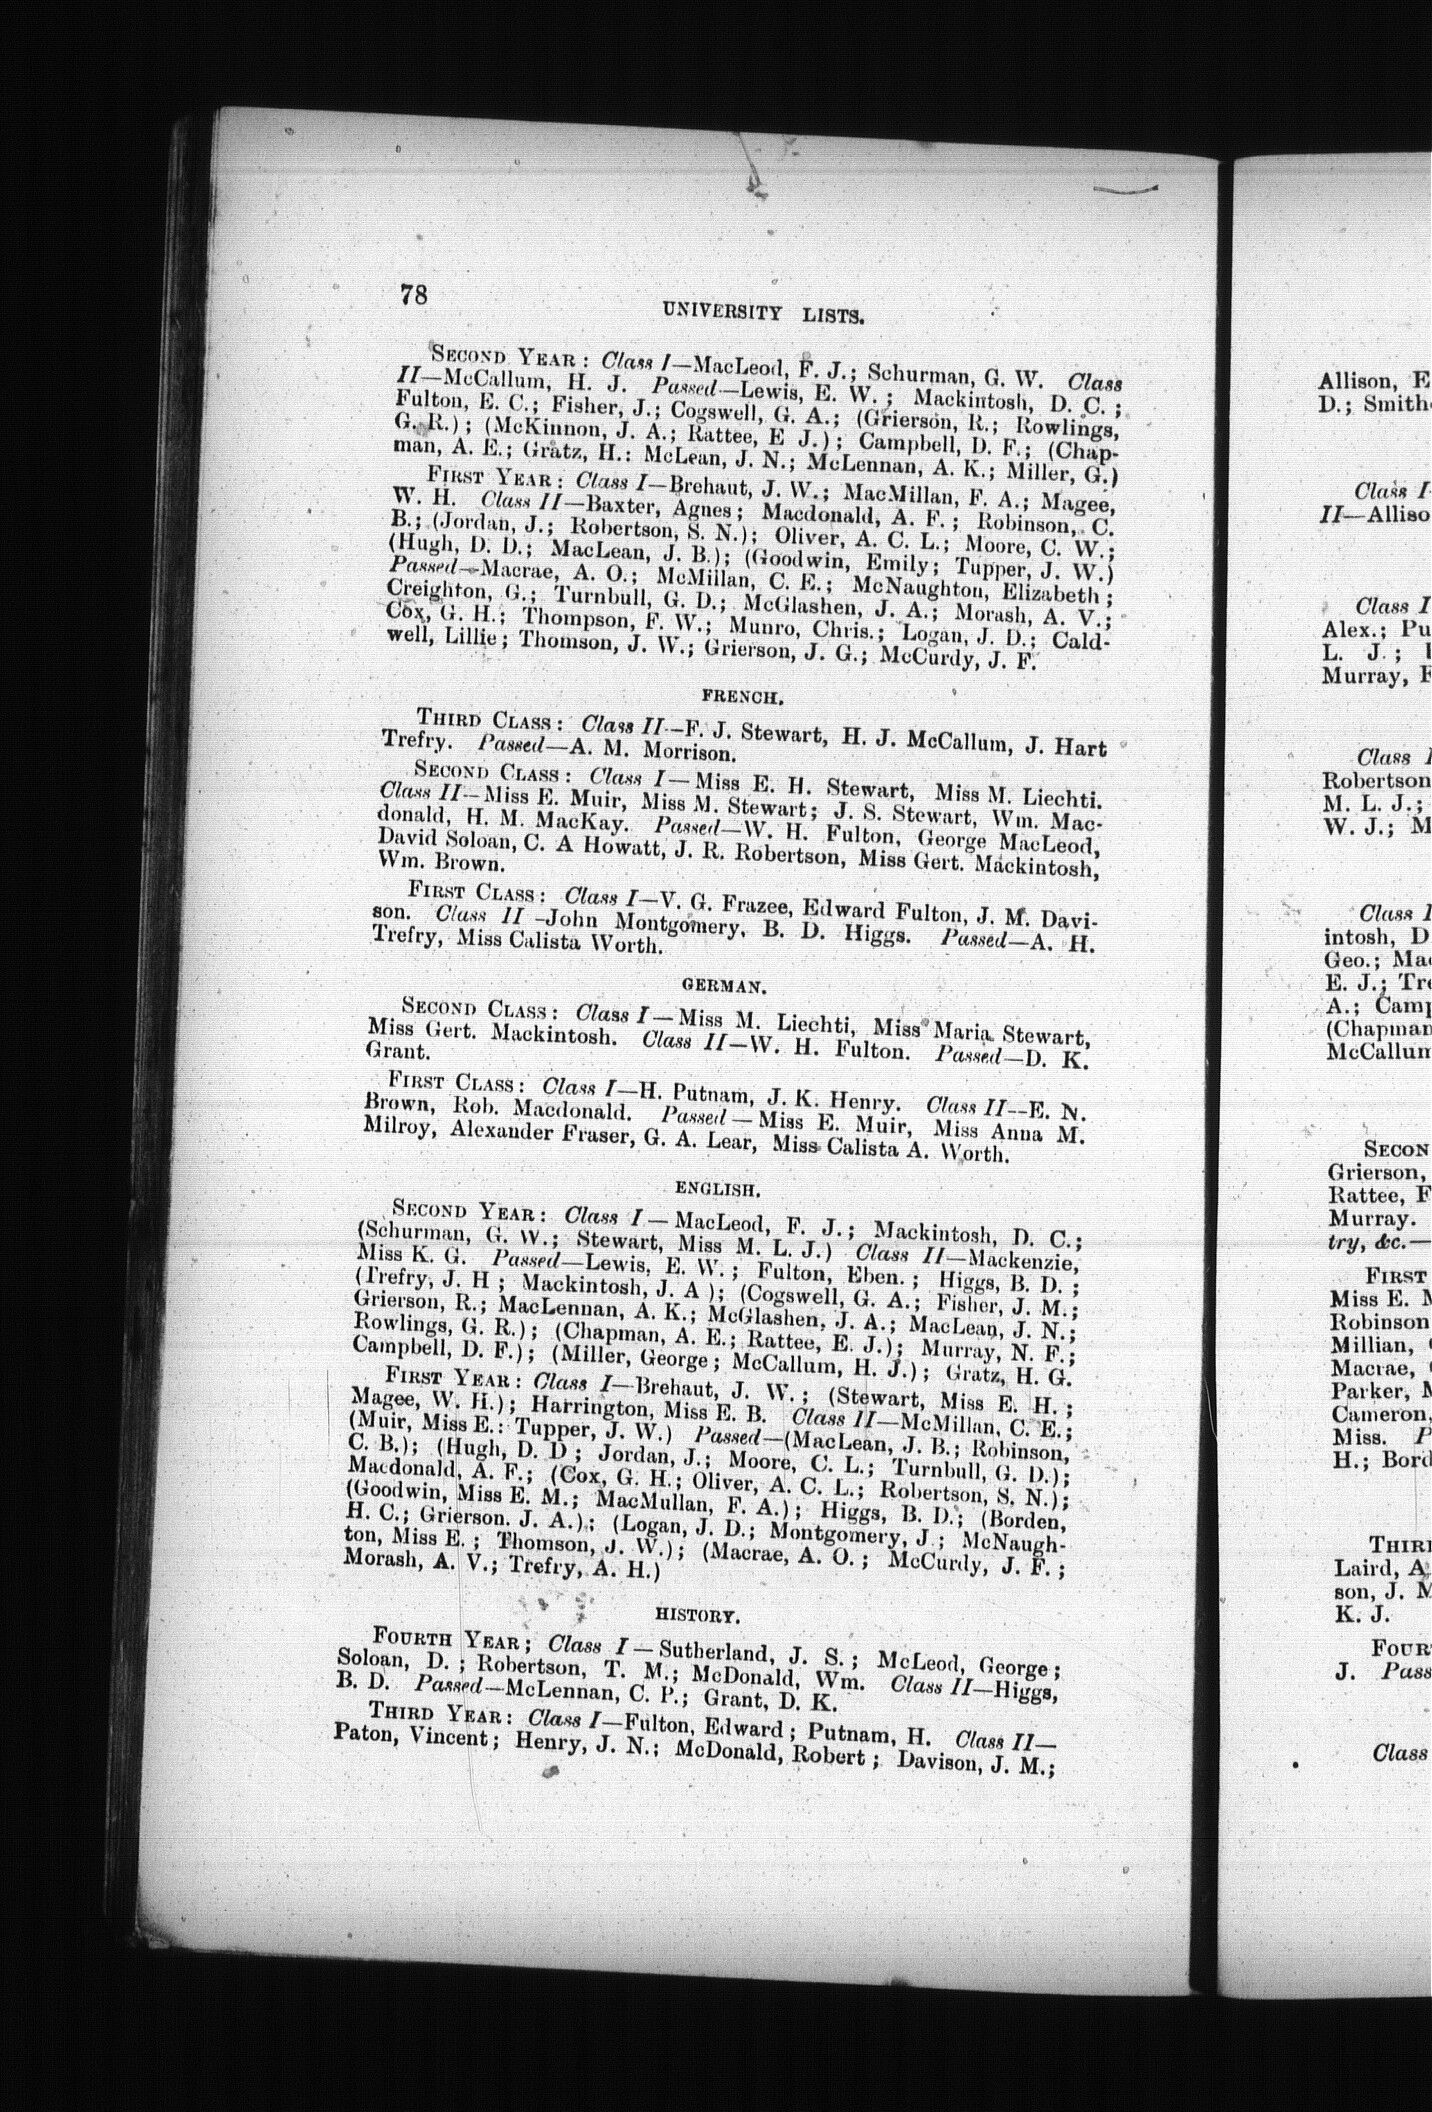 78
UNIVERSITY LISTS.
SECOND YEAR: Class I—MacLeod, F. J.; Schurman, G. W. Class
II—McCallum, H. J. Passed—Lewis, E. W.; Mackintosh, D. C.;
Fulton, E. C.; Fisher, J.; Cogswell, G. A.; (Grierson, R.; Rowlings,
G. R.); (McKinnon, J. A.; Rattee, E J.); Campbell, D. F.; (Chap-
man, A. E.; Gratz, H.: McLean, J. N.; McLennan, A. K.; Miller, G.)
FIRST YEAR: Class I—Brehaut, J. W.; MacMillan, F. A.; Magee,
W. H. Class II—Baxter, Agnes; Macdonald, A. F.; Robinson, C.
B.; (Jordan, J.; Robertson, S. N.); Oliver, A. C. L.; Moore, C. W.;
(Hugh, D. D.; MacLean, J. B.); (Goodwin, Emily; Tupper, J. W.)
Passed—Macrae, A. O.; McMillan, C. E.; McNaughton, Elizabeth;
Creighton, G.; Turnbull, G. D.; McGlashen, J. A.; Morash, A. V.;
Cox, G. H.; Thompson, F. W.; Munro, Chris.; Logan, J. D.; Cald-
well, Lillie; Thomson, J. W.; Grierson, J. G.; McCurdy, J. F.
FRENCH.
THIRD CLASS: Class II—F. J. Stewart, H. J. McCallum, J. Hart
Trefry. Passed—A. M. Morrison.
SECOND CLASS: Class I—Miss E. H. Stewart, Miss M. Liechti.
Class II—Miss E. Muir, Miss M. Stewart; J. S. Stewart, Wm. Mac-
donald, H. M. MacKay. Passed—W. H. Fulton, George MacLeod,
David Soloan, C. A Howatt, J. R. Robertson, Miss Gert. Mackintosh,
Wm. Brown.
FIRST CLASS: Class I—V. G. Frazee, Edward Fulton, J. M. Davi-
son. Class II—John Montgomery, B. D. Higgs. Passed—A. H.
Trefry, Miss Calista Worth.
GERMAN.
SECOND CLASS: Class I—Miss M. Liechti, Miss Maria Stewart,
Miss Gert. Mackintosh. Class II—W. H. Fulton. Passed—D. K.
Grant.
FIRST CLASS: Class I—H. Putnam, J. K. Henry. Class II—E. N.
Brown, Rob. Macdonald. Passed—Miss E. Muir, Miss Anna M.
Milroy, Alexander Fraser, G. A. Lear, Miss Calista A. Worth.
ENGLISH.
SECOND YEAR: Class I—MacLeod, F. J.; Mackintosh, D. C.;
(Schurman, G. W.; Stewart, Miss M. L. J.) Class II—Mackenzie,
Miss K. G. Passed—Lewis, E. W.; Fulton, Eben.; Higgs, B. D.;
(Trefry, J. H ; Mackintosh, J. A ); (Cogswell, G. A.; Fisher, J. M.;
Grierson, R.; MacLennan, A. K.; McGlashen, J. A.; MacLean, J. N.;
Rowlings, G. R.); (Chapman, A. E.; Rattee, E. J.); Murray, N. F.;
Campbell, D. F.); (Miller, George; McCallum, H. J.); Gratz, H. G.
FIRST YEAR: Class I—Brehaut, J. W.; (Stewart, Miss E. H.;
Magee, W. H.); Harrington, Miss E. B. Class II—McMillan, C. E.;
(Muir, Miss E.: Tupper, J. W.) Passed—(MacLean, J. B.; Robinson,
C. B.); (Hugh, D. D ; Jordan, J.; Moore, C. L.; Turnbull, G. D.);
Macdonald, A. F.; (Cox, G. H.; Oliver, A. C. L.; Robertson, S. N.);
(Goodwin, Miss E. M.; MacMullan, F. A.); Higgs, B. D.; (Borden,
H. C.; Grierson. J. A.); (Logan, J. D.; Montgomery, J.; McNaugh-
ton, Miss E.; Thomson, J. W.); (Macrae, A. O.; McCurdy, J. F.;
Morash, A. V.; Trefry, A. H.)
HISTORY.
FOURTH YEAR; Class I—Sutherland, J. S.; McLeod, George;
Soloan, D.; Robertson, T. M.; McDonald, Wm. Class II—Higgs,
B. D. Passed—McLennan, C. P.; Grant, D. K.
THIRD YEAR: Class I—Fulton, Edward; Putnam, H. Class II—
Paton, Vincent; Henry, J. N.; McDonald, Robert; Davison, J. M.;
Allison, E
D.; Smith
Class I
II—Alliso
Class I
Alex.; Pu
L. J.;
Murray,
Class
Robertson
M. L. J.;
W. J.; M
Class
intosh, D
Geo.; Ma
E. J.; Tre
A.; Camp
(Chapman
McCallum
SECON
Grierson,
Rattee, F
Murray.
try, &c.—
FIRST
Miss E. M
Robinson
Millian,
Macrae,
Parker, M
Cameron,
Miss. P
H.; Bord
THIR
Laird, A
son, J. M
K. J.
FOUR
J. Pass
Class